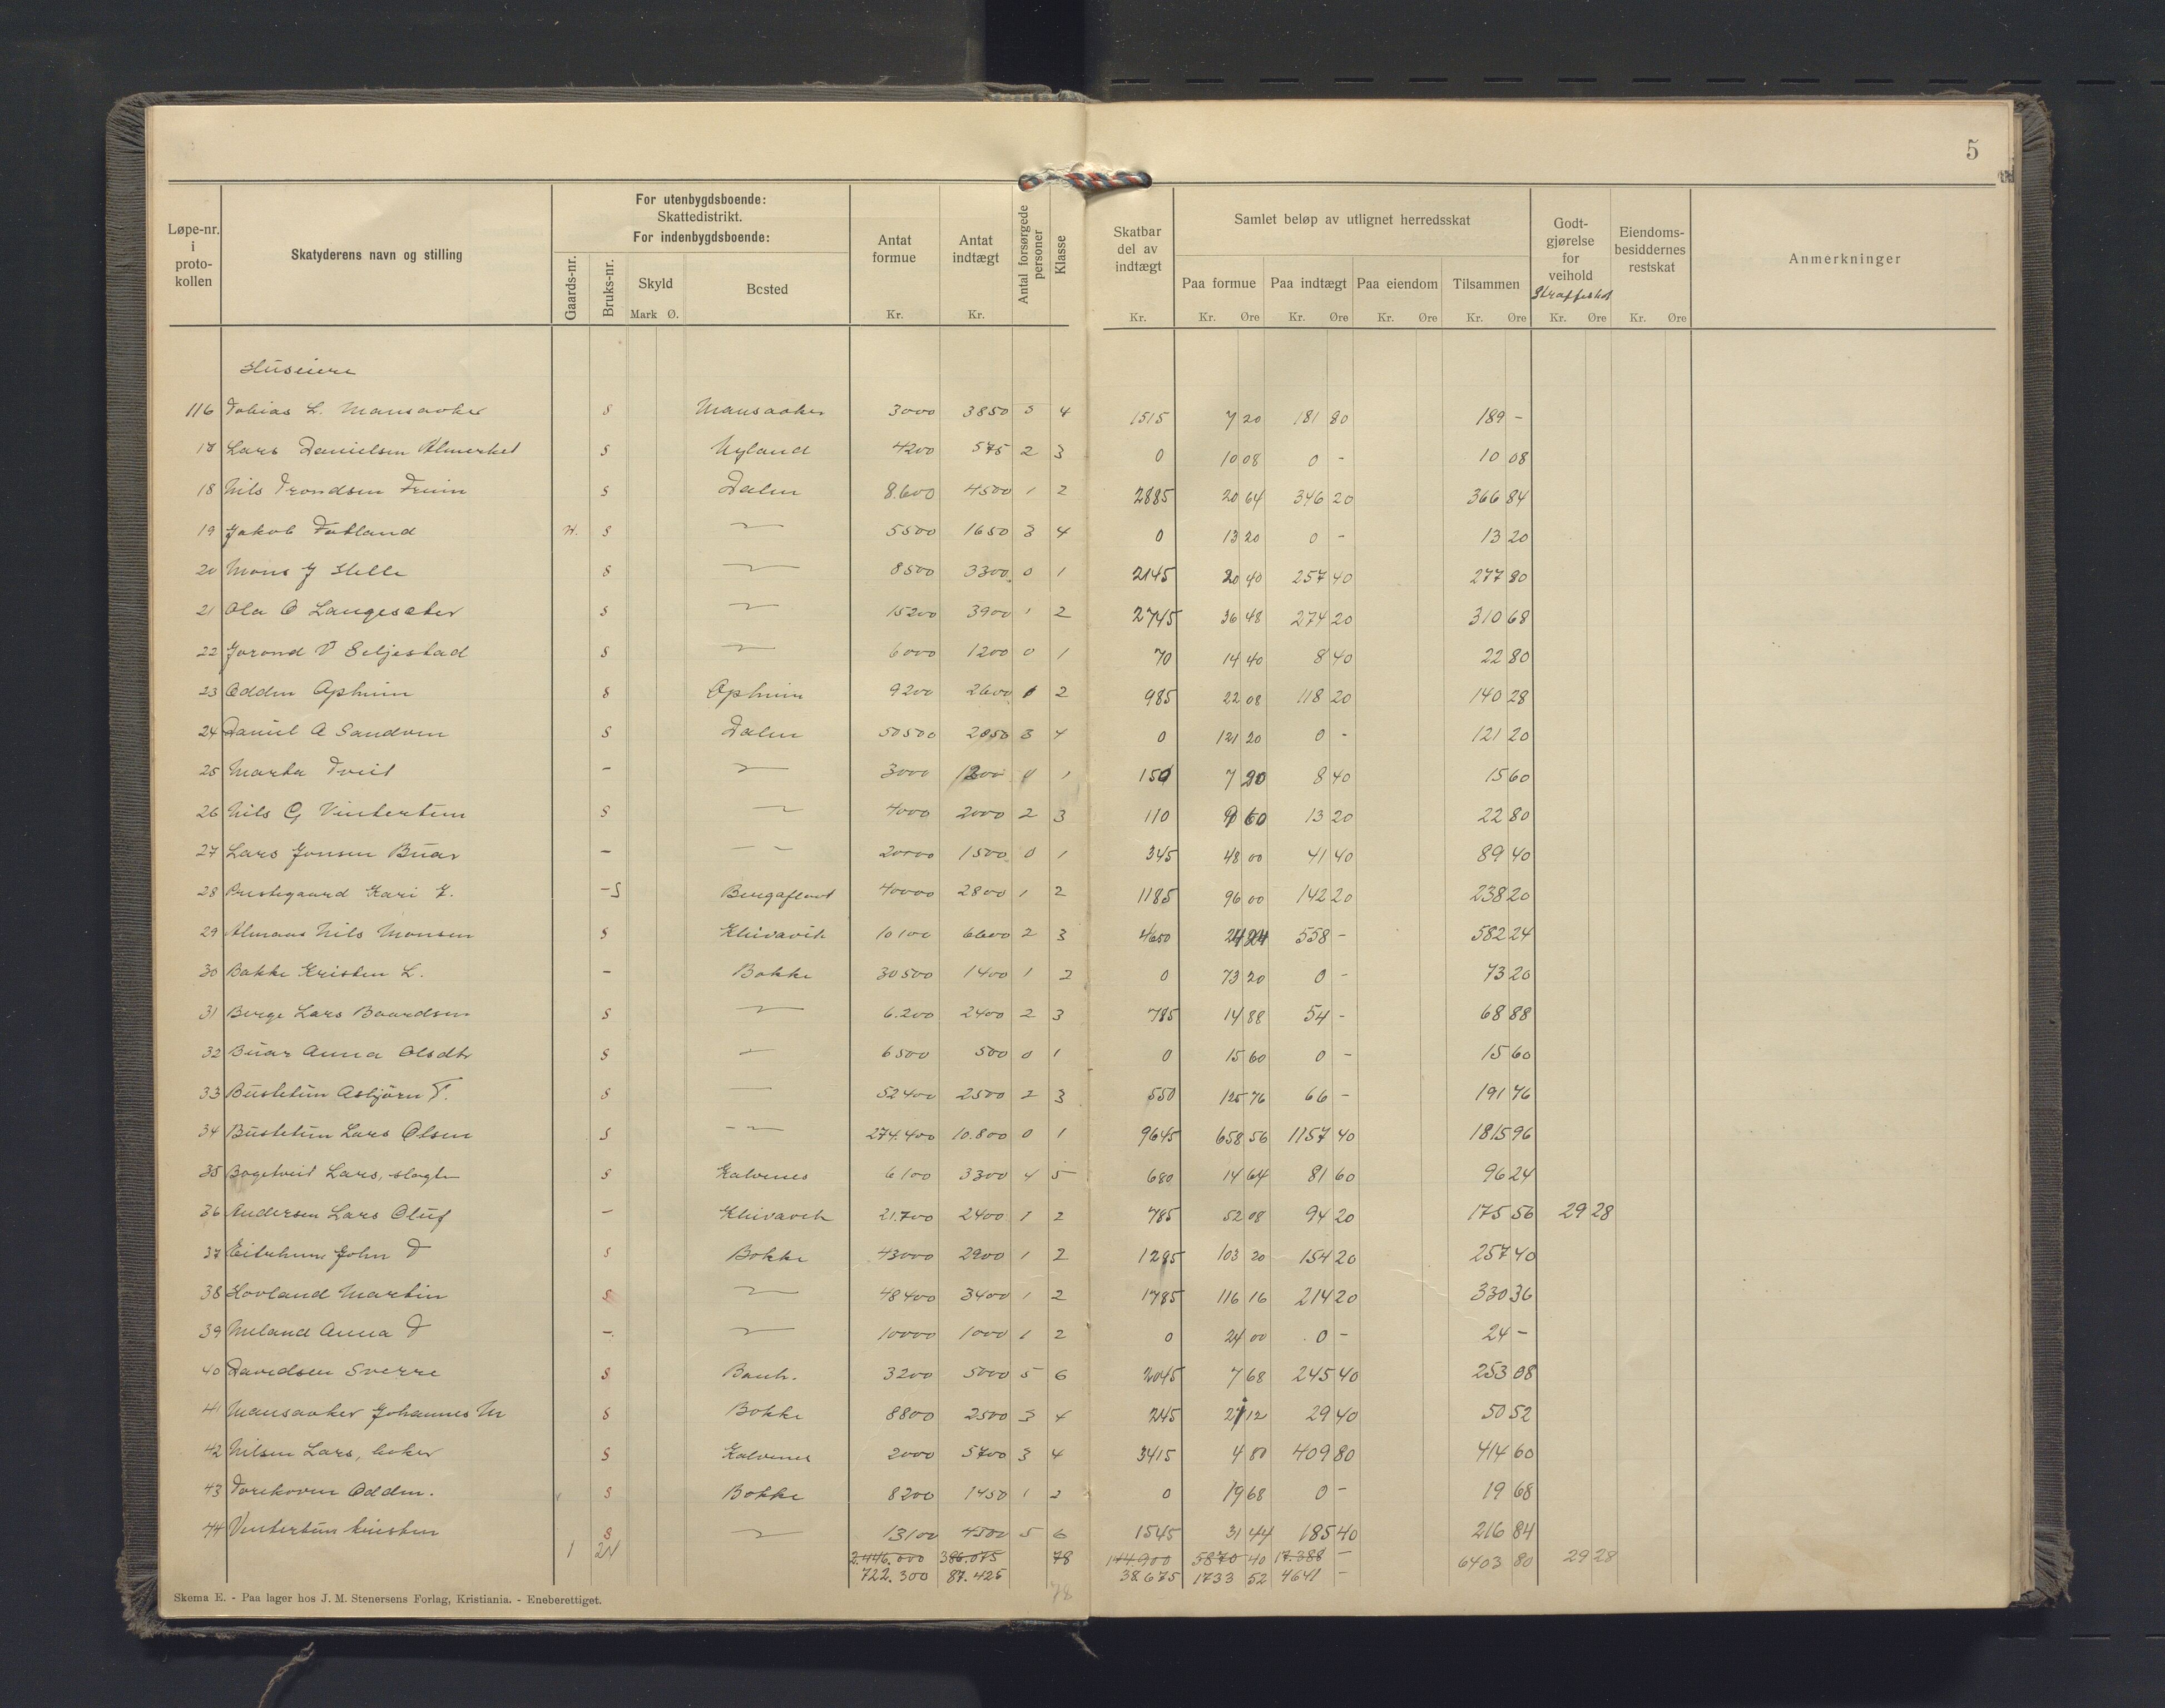 5
Løpe-nr. i proto-kollen
Skatyderens navn og stilling
For utenbygdsboende:
Skattedistrikt.
For indenbygdsboende:
Gaards-nr.
Bruks-nr.
Skyld
Mark Ø.
Bosted
Antat formue
Kr.
Antat indtægt
Kr.
Antal forsørgede personer
Klasse
Skatbar del av indtægt
Kr.
Samlet beløp av utlignet herredsskat
Paa formue
Kr. Øre
Paa indtægt
Kr. Øre
Paa eiendom
Kr. Øre
Tilsammen
Kr. Øre
Godt-gjørelse for veihold
Straffeskat
Kr. Øre
Eiendoms-besiddernes restskat
Kr. Øre
Anmerkninger
Huseiere
116 Tobias L. Mansaaker S Mansaaker 3000 3850 3 4 1515 7 20 181 80 189 -
17 Lars Danielsen Almerket S Nyland 4200 575 2 3 0 10 08 0 - 10 08
18 Nils Trondsen Freim S Dalen 8.600 4500 1 2 2885 20 64 346 20 366 84
19 Jakob Tufland H. S 5500 1650 3 4 0 13 20 0 - 13 20
20 Mons J Helle S 8500 3300 0 1 2145 20 40 257 40 277 80
21 Ola O Langesæter S 15200 3900 1 2 2745 36 48 274 20 310 68
22 Jorond T Seljestad S 6000 1200 0 1 70 14 40 8 40 22 80
23 Odden Apheim S Apheim 9200 2600 2 985 22 08 118 20 140 28
24 Daniel A Sandven S Dalen 50500 2850 3 4 0 121 20 0 - 121 20
25 Marta Tveit - 3000 1200 1 150 7 20 8 40 15 60
26 Nils G Vintertun S 4000 2000 2 3 110 9 60 13 20 22 80
27 Lars Jonsen Buar - 20000 1500 0 1 345 48 00 41 40 89 40
28 Prestegaard Kari J. - S 40000 2800 1 2 1185 96 00 142 20 238 20
29 Almaas Nils Monsen S 10100 6600 2 3 4650 24 24 558 - 582 24
30 Bakke Kristen L. - Bakke 30500 1400 1 2 0 73 20 0 - 73 20
31 Berge Lars Baardsen S 6.200 2400 2 3 785 14 88 54 - 68 88
32 Buar Anna Olsdtr S 6500 500 0 1 0 15 60 0 - 15 60
33 Bustetun Asbjørn T. S 52400 2500 2 3 550 125 76 66 - 191 76
34 Bustetun Lars Olsen S 274.400 10.800 0 1 9645 658 56 1157 40 1815 96
35 Bogetveit Lars, slagter S Kalvenes 6100 3300 4 5 680 14 64 81 60 96 24
36 Andersen Lars Oluf - 21.700 2400 1 2 785 52 08 94 20 175 56 29 28
37 Eitrheim John T S Bakke 43000 2900 1 2 1285 103 20 154 20 257 40
38 Hovland Martin S 48400 3400 1 2 1785 116 16 214 20 330 36
39 Meland Anna T - 10000 1000 1 2 0 24 00 0 - 24 -
40 Davidsen Sverre S 3200 5000 5 6 2045 7 68 245 40 253 08
41 Mansaaker Johannes M S Bakke 8800 2500 3 4 245 21 12 29 40 50 52
42 Nilsen Lars, baker S Kalvenes 2000 5700 3 4 3415 4 80 409 80 414 60
43 Odden. S Bakke 8200 1450 1 2 0 19 68 0 - 19 68
44 Vintertun S 13100 4500 5 6 1545 31 44 185 40 216 84
1 24 2.446.000 386.075 78 144.900 5870 40 17.388 - 6403 80 29 28
722.300 87.425 38675 1733 52 4641 -
78
Skema E. - Paa lager hos J. M. Stenersens Forlag, Kristiania. - Eneberettiget.